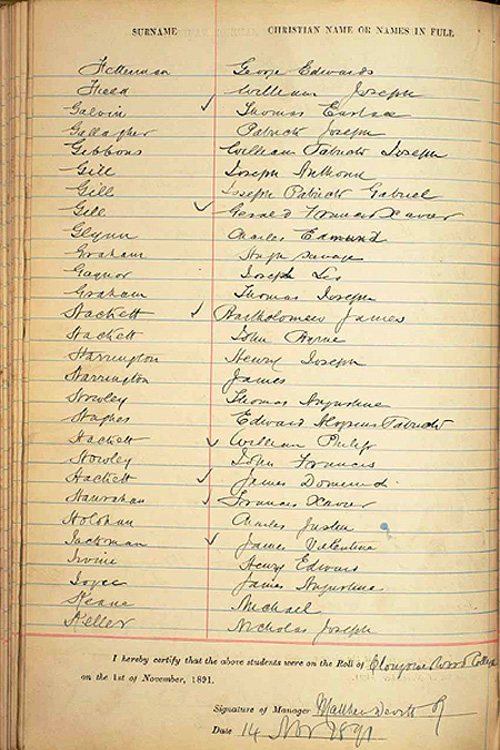 SURNAME CHRISTIAN NAME OR NAMES IN FULL
George Edwards
William Joseph
Galvin ✓ Thomas Eustace
Gallagher Patrick Joseph
Gibbons William Patrick Joseph
Gill Joseph Anthony
Gill Joseph Patrick Gabriel
Gill ✓ Gerald Francis Xavier
Glynn Charles Edmund
Graham Hugh Savage
Gaynor Joseph Leo
Graham Thomas Joseph
Hackett ✓ Bartholomew James
Hackett John Byrne
Harrington Henry Joseph
Harrington James
Howley Thomas Augustine
Hughes Edward Aloysius Patrick
Hackett ✓ William Philip
Howley John Francis
Hackett ✓ James Dominick
Hanrahan ✓ Francis Xavier
Holohan Charles Justin
Jackman ✓ James Valentine
Irvine Henry Edward
Joyce James Augustine
Keane Michael
Keller Nicholas Joseph
I hereby certify that the above students were on the Roll of Clongowes Wood College
on the 1st of November, 1891.
Signature of Manager Matthew Devitt SJ
Date 14 Nov 1891